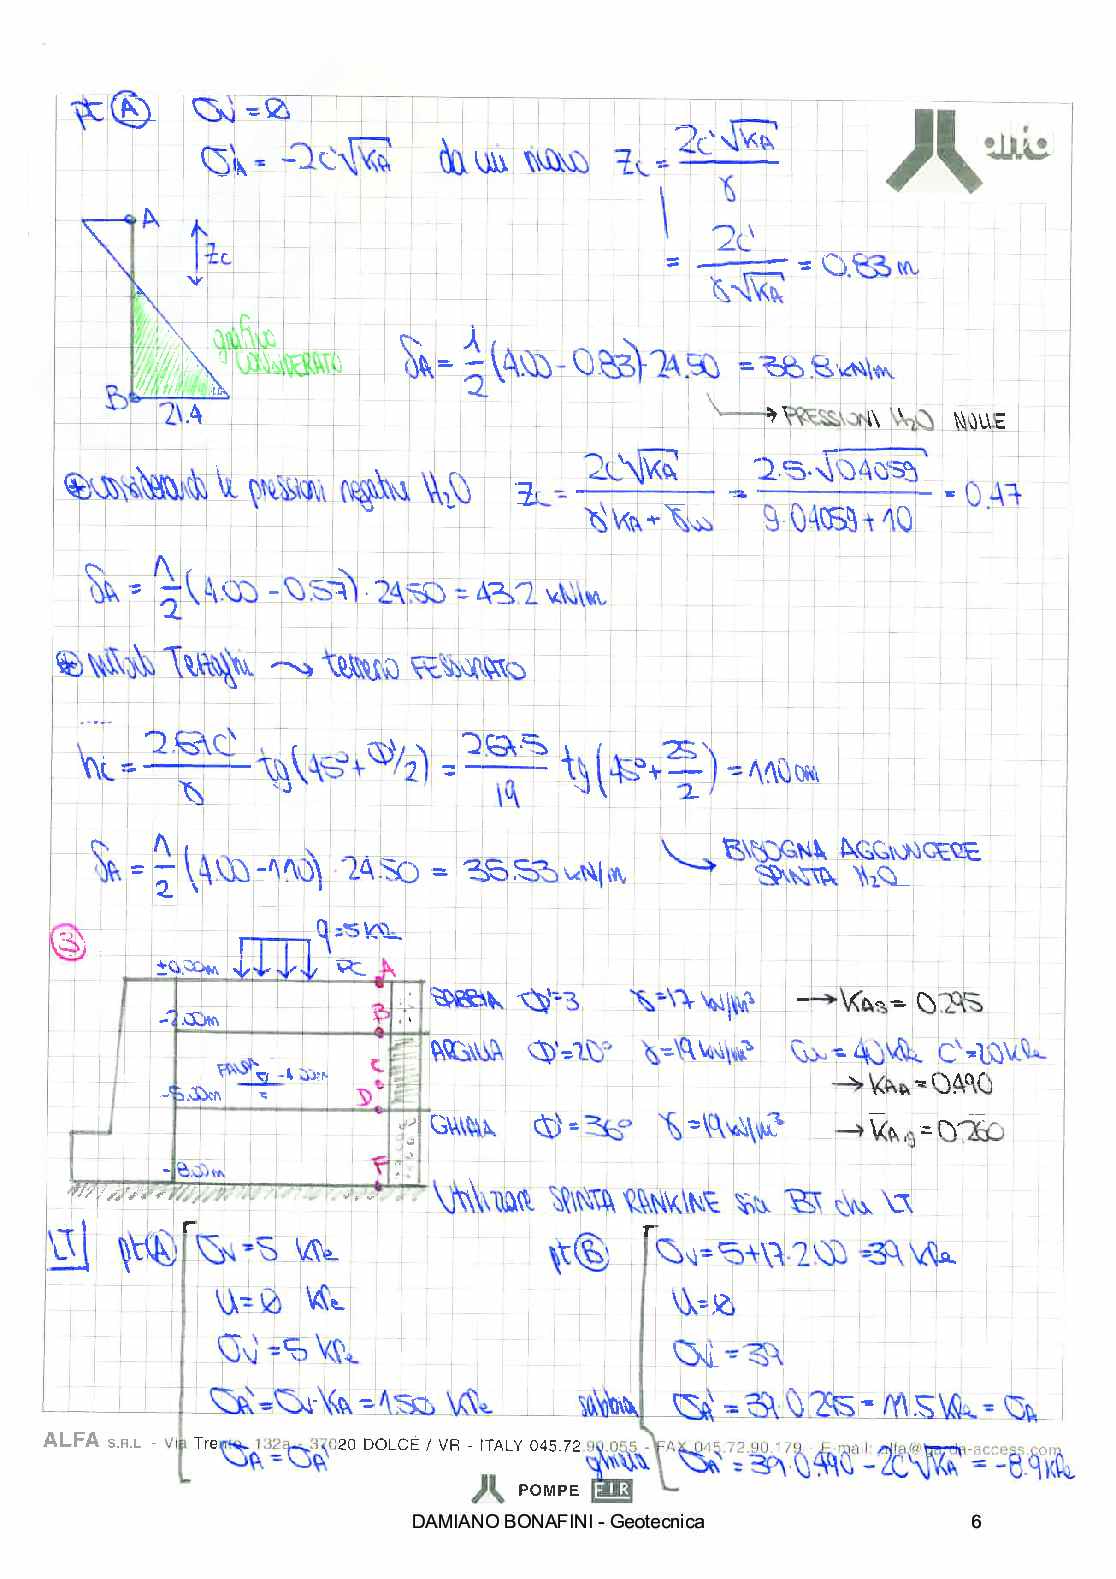 pt Ⓐ σv' = Ø
σA' = -2c'√KA da cui ricavo zc = 2c'√KA / γ
alfa
A
zc
= 2c' / γ√KA = 0.83 m
grafico
CONSIDERATO
SA = 1/2 (4.00 - 0.83) · 24.50 = 38.8 kN/m
B
21.4
→ PRESSIONI H2O NULLE
⊕ considerando le pressioni negative H2O zc = 2c'√KA / γ'KA + γw = 2·5·√0.4059 / 9·0.4059 + 10 = 0.47
SA = 1/2 (4.00 - 0.57) · 24.50 = 43.2 kN/m
⊕ metodo Terzaghi → terreno FESSURATO
hc = 2.67c' / γ tg(45° + Φ'/2) = 2.67·5 / 19 tg(45° + 25/2) = 1.10 cm
SA = 1/2 (4.00 - 1.10) · 24.50 = 35.53 kN/m
→ BISOGNA AGGIUNGERE
SPINTA H2O
③
q = 5 kPa
±0.00m PC A
SABBIA Φ'=3 γ=17 kN/m³ → KAs = 0.295
-2.00m B
ARGILLA Φ'=20° γ=19 kN/m³ Cu = 40 kPa C'=20 kPa
C
FALDA -4.00m
→ KAA = 0.490
-5.00m D
GHIAIA Φ' = 36° γ = 19 kN/m³ → KA,g = 0.260
-8.00m F
Utilizzare SPINTA RANKINE sia BT che LT
LT pt Ⓐ σv = 5 kPa
u = Ø kPa
σv' = 5 kPa
σA' = σv·KA = 1.50 kPa
σA = σA'
pt Ⓑ σv = 5+17·2.00 = 39 kPa
u = Ø
σv' = 39
sabbia σA' = 39·0.295 = 11.5 kPa = σA
argilla σA' = 39·0.490 - 2c'√KA' = -8.9 kPa
ALFA S.R.L - Via Trento, 132a - 37020 DOLCÉ / VR - ITALY 045.72.90.055 - FAX 045.72.90.179 - E-mail: alfa@garda-access.com
POMPE FIR
DAMIANO BONAFINI - Geotecnica 6